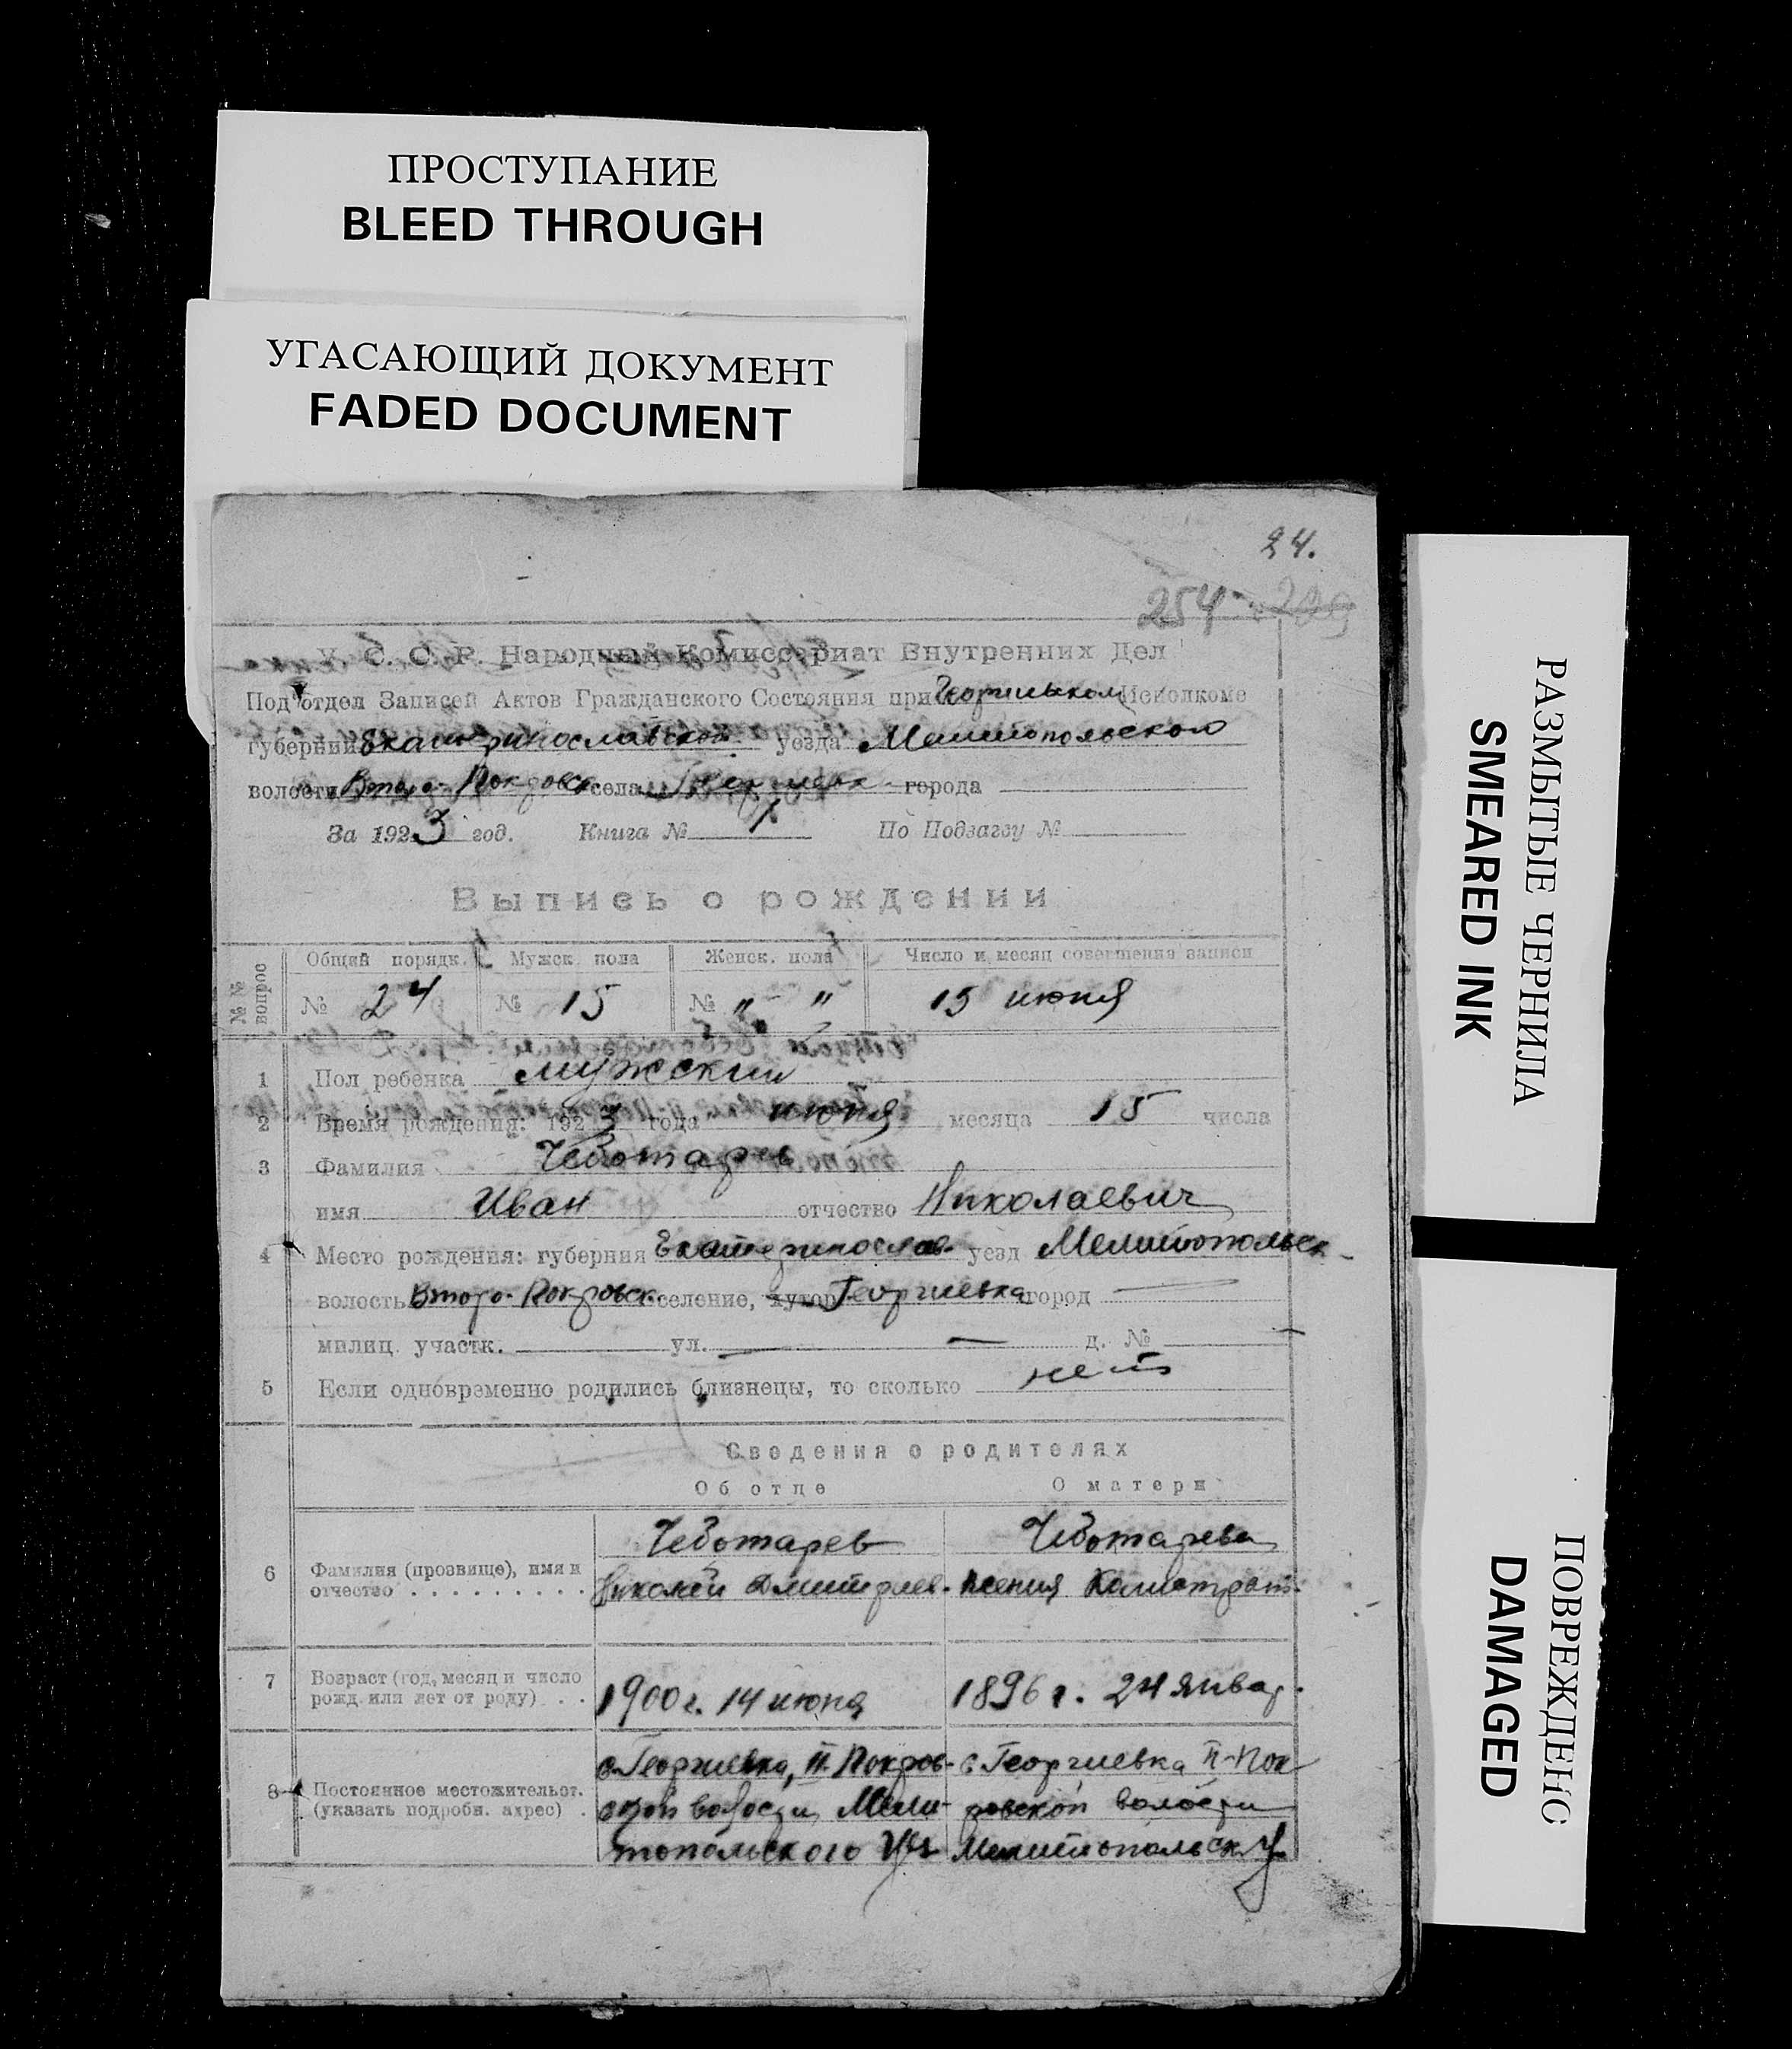 ПРОСТУПАНИЕ
BLEED THROUGH
УГАСАЮЩИЙ ДОКУМЕНТ
FADED DOCUMENT
24.
254 299
У. С. С. Р. Народный Комиссариат Внутренних Дел
Под'отдел Записей Актов Гражданского Состояния при Исполкоме
губернии Екатеринославской уезда Мелитопольского
волости Второ-Покровск. села Георгиевк. города
За 1923 год. Книга № 1 По Подзагсу №
Выпись о рождении
№№ вопрос Общий порядк. Мужск. пола Женск. пола Число и месяц совершения записи
№ 24 № 15 № " - " 15 июня
1 Пол ребенка мужский
2 Время рождения: 1923 года июня месяца 15 числа
3 Фамилия Чеботарев
имя Иван отчество Николаевич
4 Место рождения: губерния Екатеринослав. уезд Мелитопольск.
волость Второ-Покровск. селение, хутор Георгиевка город —
милиц. участк. — ул. — д. № —
5 Если одновременно родились близнецы, то сколько нет
Сведения о родителях
Об отце О матери
Чеботарев Чеботарева
6 Фамилия (прозвище), имя и
отчество . . . . . . . . . Николай Дмитриев. Ксения Калистрат.
7 Возраст (год, месяц и число
рожд. или лет от роду) . . 1900 г. 14 июня 1896 г. 24 январ.
с. Георгиевка, II-Покров- с. Георгиевка II-Пок
8 Постоянное местожительст.
(указать подробн. адрес) . ской волости, Мели- ровской волости
топольского Уез. Мелитопольск. У.
РАЗМЫТЫЕ ЧЕРНИЛА
SMEARED INK
ПОВРЕЖДЕНО
DAMAGED